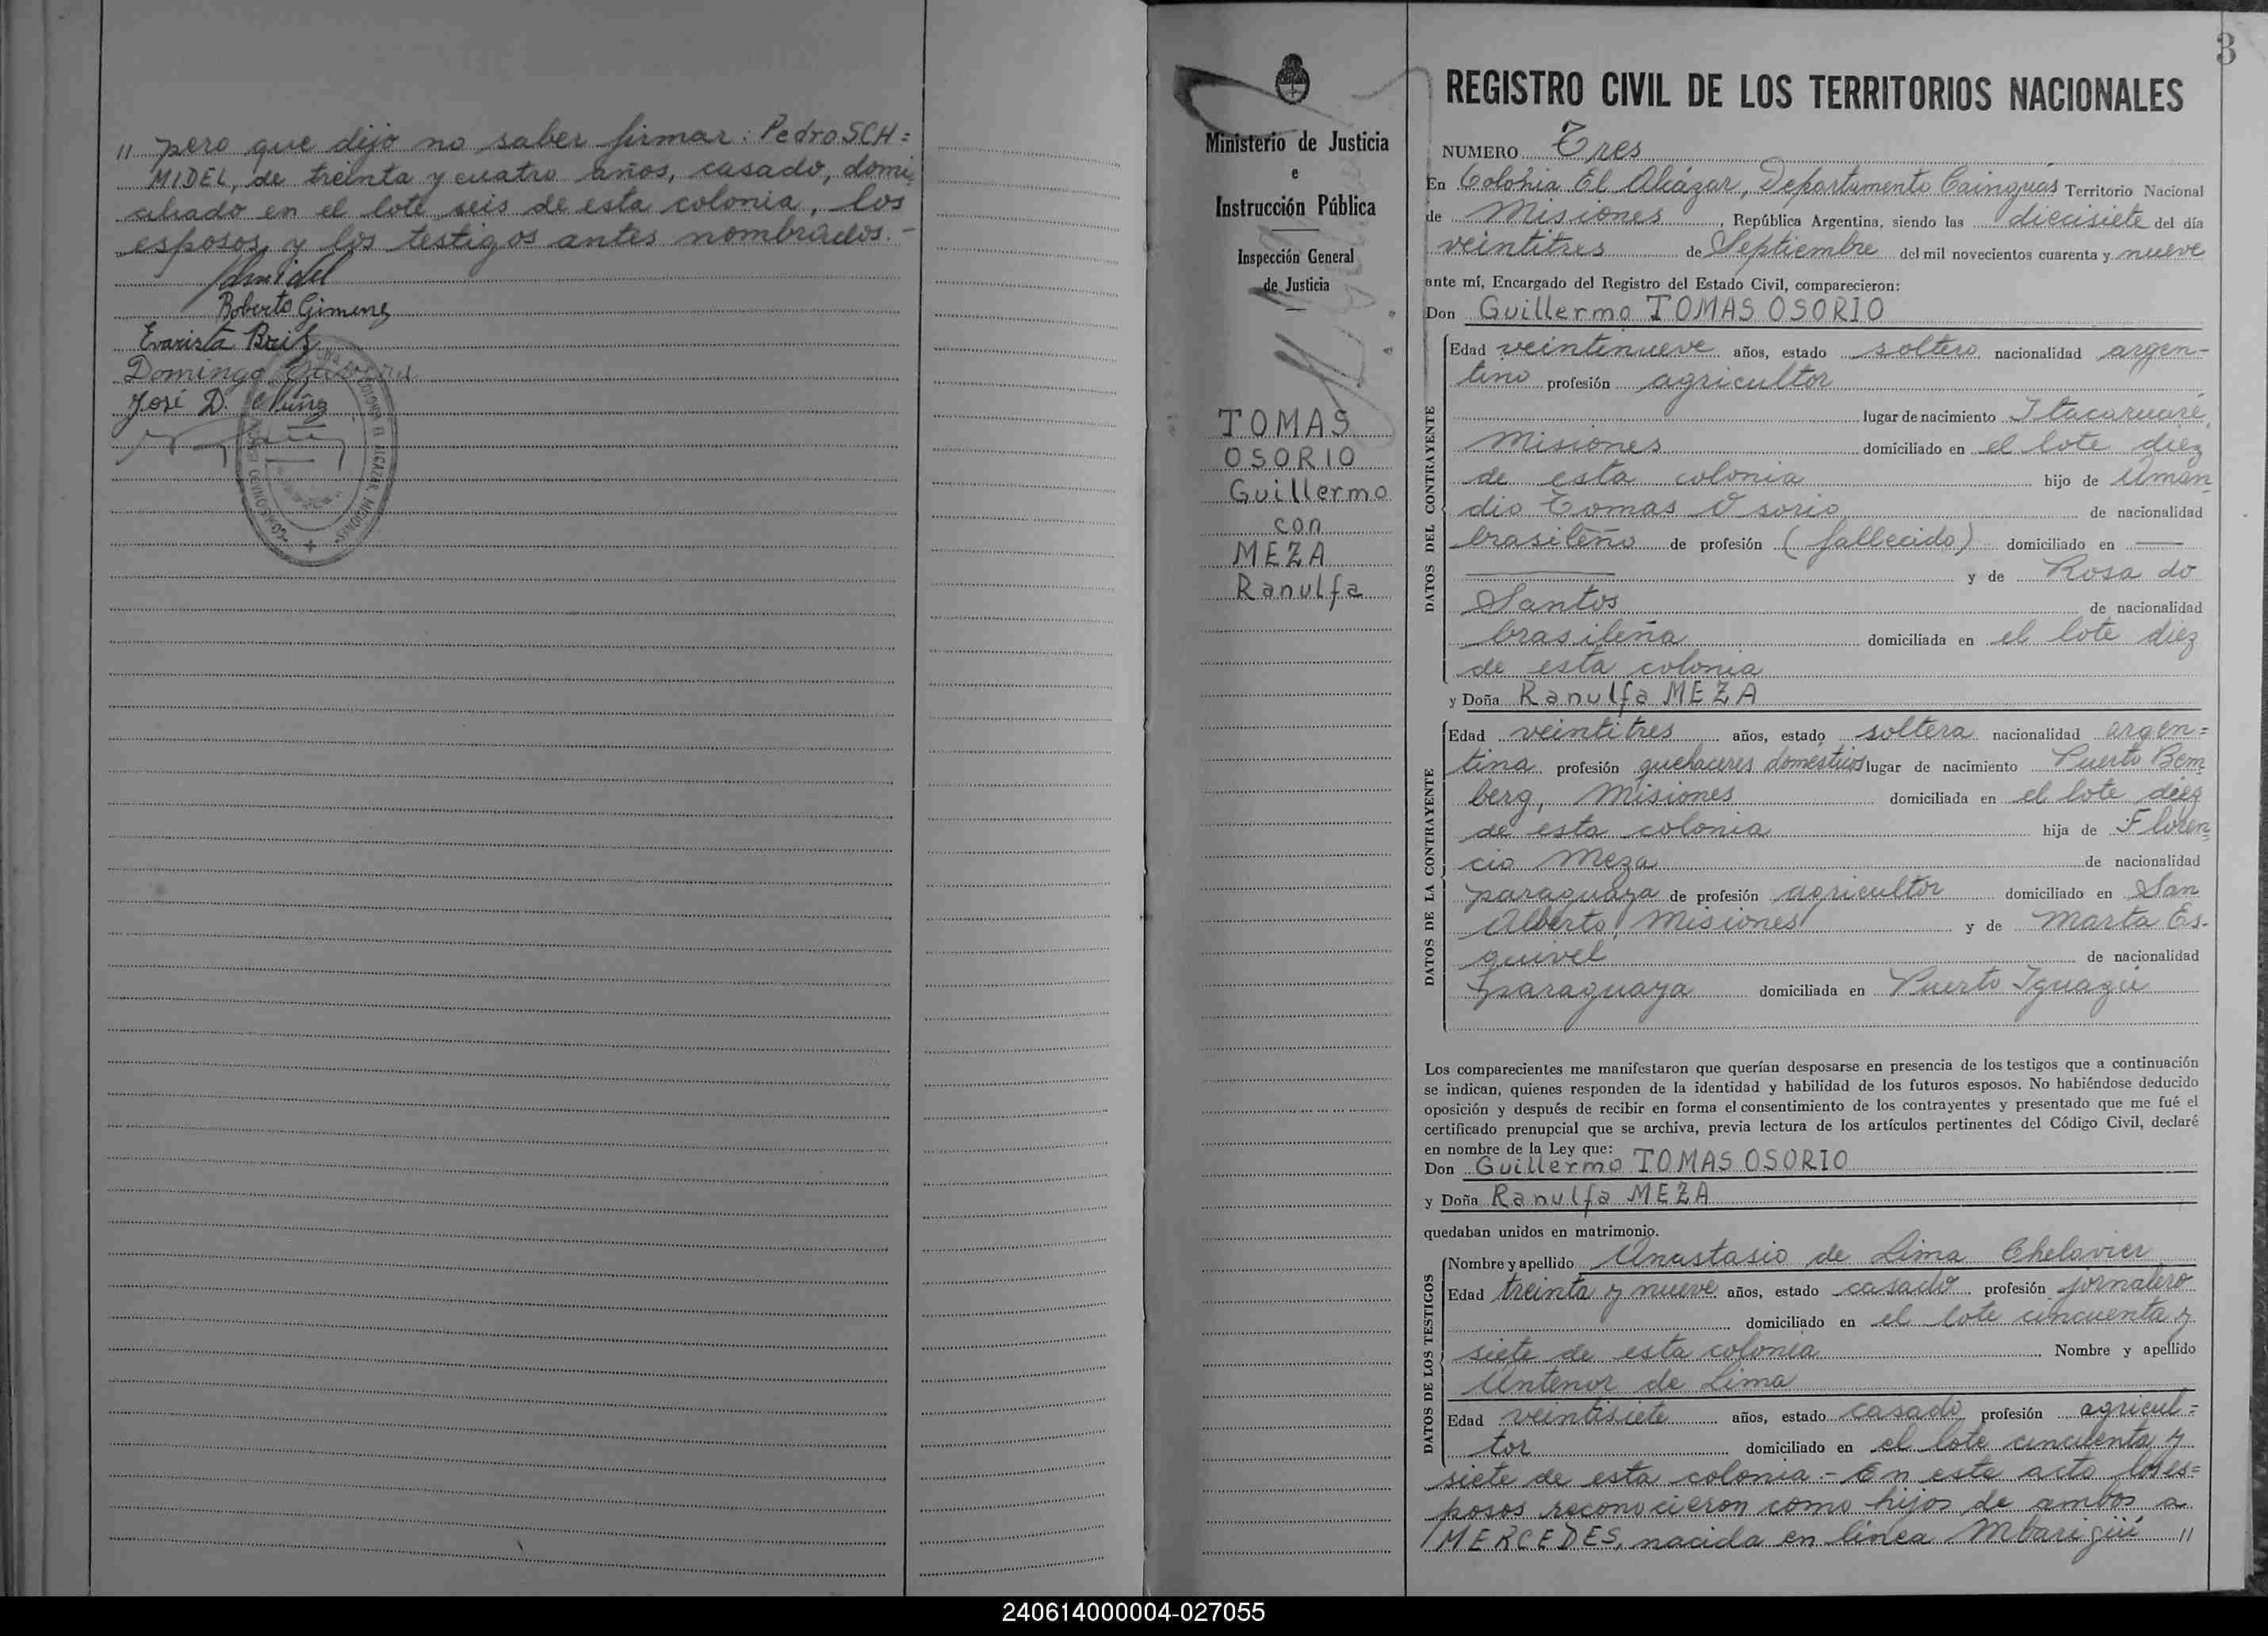 " pero que dijo no saber firmar: Pedro SCH=
MIDEL, de treinta y cuatro años, casado, domi
ciliado en el lote seis de esta colonia, los
esposos y los testigos antes nombrados.-
Schmidel
Roberto Gimenez
Evarista
Domingo
José D.
3
Ministerio de Justicia
e
Instrucción Pública
Inspección General
de Justicia
TOMAS
OSORIO
Guillermo
con
MEZA
Ranulfa
REGISTRO CIVIL DE LOS TERRITORIOS NACIONALES
NUMERO Tres
En Colohia El Alcázar, Departamento Cainguás Territorio Nacional
de Misiones, República Argentina, siendo las diecisiete del día
veintitres de Septiembre del mil novecientos cuarenta y nueve
ante mí, Encargado del Registro del Estado Civil, comparecieron:
Don Guillermo TOMAS OSORIO
DATOS DEL CONTRAYENTE
Edad veintinueve años, estado soltero nacionalidad argen-
tino profesión agricultor
lugar de nacimiento Itacaruaré,
Misiones domiciliado en el lote diez
de esta colonia hijo de Aman
dio Tomas Osorio de nacionalidad
brasileño de profesión (fallecido) domiciliado en —
y de Rosa do
Santos de nacionalidad
brasileña domiciliada en el lote diez
de esta colonia
y Doña Ranulfa MEZA
DATOS DE LA CONTRAYENTE
Edad veintitres años, estado soltera nacionalidad argen=
tina profesión quehaceres domésticos lugar de nacimiento Puerto Bem
berg, Misiones domiciliada en el lote diez
de esta colonia hija de Floren=
cio Meza de nacionalidad
paraguaya de profesión agricultor domiciliado en San
Alberto, Misiones y de Marta Es-
quivel de nacionalidad
paraguaya domiciliada en Puerto Iguazú
Los comparecientes me manifestaron que querían desposarse en presencia de los testigos que a continuación
se indican, quienes responden de la identidad y habilidad de los futuros esposos. No habiéndose deducido
oposición y después de recibir en forma el consentimiento de los contrayentes y presentado que me fué el
certificado prenupcial que se archiva, previa lectura de los artículos pertinentes del Código Civil, declaré
en nombre de la Ley que:
Don Guillermo TOMAS OSORIO
y Doña Ranulfa MEZA
quedaban unidos en matrimonio.
DATOS DE LOS TESTIGOS
Nombre y apellido Anastasio de Lima Chelavier
Edad treinta y nueve años, estado casado profesión jornalero
domiciliado en el lote cincuenta y
siete de esta colonia Nombre y apellido
Antenor de Lima
Edad veintisiete años, estado casado profesión agricul=
tor domiciliado en el lote cincuenta y
siete de esta colonia.- En este acto los es=
posos reconocieron como hijos de ambos a
MERCEDES, nacida en línea Mbarigüí "
240614000004-027055